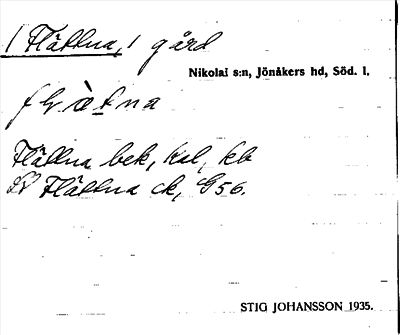 1 Flättna, 1 gård
Nikolai s:n, Jönåkers hd, Söd. l.
Flättna bek, kal, kb
Flättna ck, G56.
STIG JOHANSSON 1935.